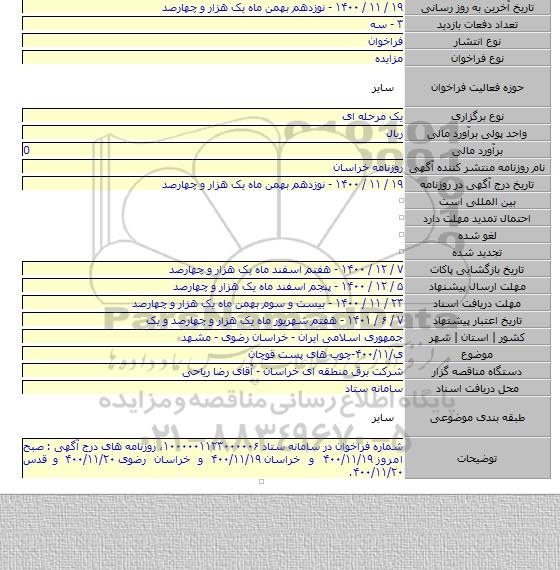 تاریخ آخرین به روز رسانی ۱۹ / ۱۱ / ۱۴۰۰ - نوزدهم بهمن ماه یک هزار و چهارصد
تعداد دفعات بازدید ۳ - سه
نوع انتشار فراخوان
نوع فراخوان مزایده
حوزه فعالیت فراخوان سایر
نوع برگزاری یک مرحله ای
واحد پولی برآورد مالی ریال
برآورد مالی 0
نام روزنامه منتشر کننده آگهی روزنامه خراسان
تاریخ درج آگهی در روزنامه ۱۹ / ۱۱ / ۱۴۰۰ - نوزدهم بهمن ماه یک هزار و چهارصد
بین المللی است
احتمال تمدید مهلت دارد
لغو شده
تجدید شده
تاریخ بازگشایی پاکات ۷ / ۱۲ / ۱۴۰۰ - هفتم اسفند ماه یک هزار و چهارصد
مهلت ارسال پیشنهاد ۵ / ۱۲ / ۱۴۰۰ - پنجم اسفند ماه یک هزار و چهارصد
مهلت دریافت اسناد ۲۳ / ۱۱ / ۱۴۰۰ - بیست و سوم بهمن ماه یک هزار و چهارصد
تاریخ اعتبار پیشنهاد ۷ / ۶ / ۱۴۰۱ - هفتم شهریور ماه یک هزار و چهارصد و یک
کشور | استان | شهر جمهوری اسلامی ایران - خراسان رضوی - مشهد
موضوع ی/۴۰۰/۱۱-چوب های پست قوچان
دستگاه مناقصه گزار شرکت برق منطقه ای خراسان - آقای رضا ریاحی
محل دریافت اسناد سامانه ستاد
طبقه بندی موضوعی سایر
توضیحات شماره فراخوان در سامانه ستاد ۱۰۰۰۰۰۱۱۲۳۰۰۰۰۰۶، روزنامه های درج آگهی : صبح
امروز ۴۰۰/۱۱/۱۹ و خراسان ۴۰۰/۱۱/۱۹ و خراسان رضوی ۴۰۰/۱۱/۲۰ و قدس
۴۰۰/۱۱/۲۰.
پایگاه اطلاع رسانی مناقصه و مزایده
۰۲۱-۸۸۳۴۹۶۷۰-۵